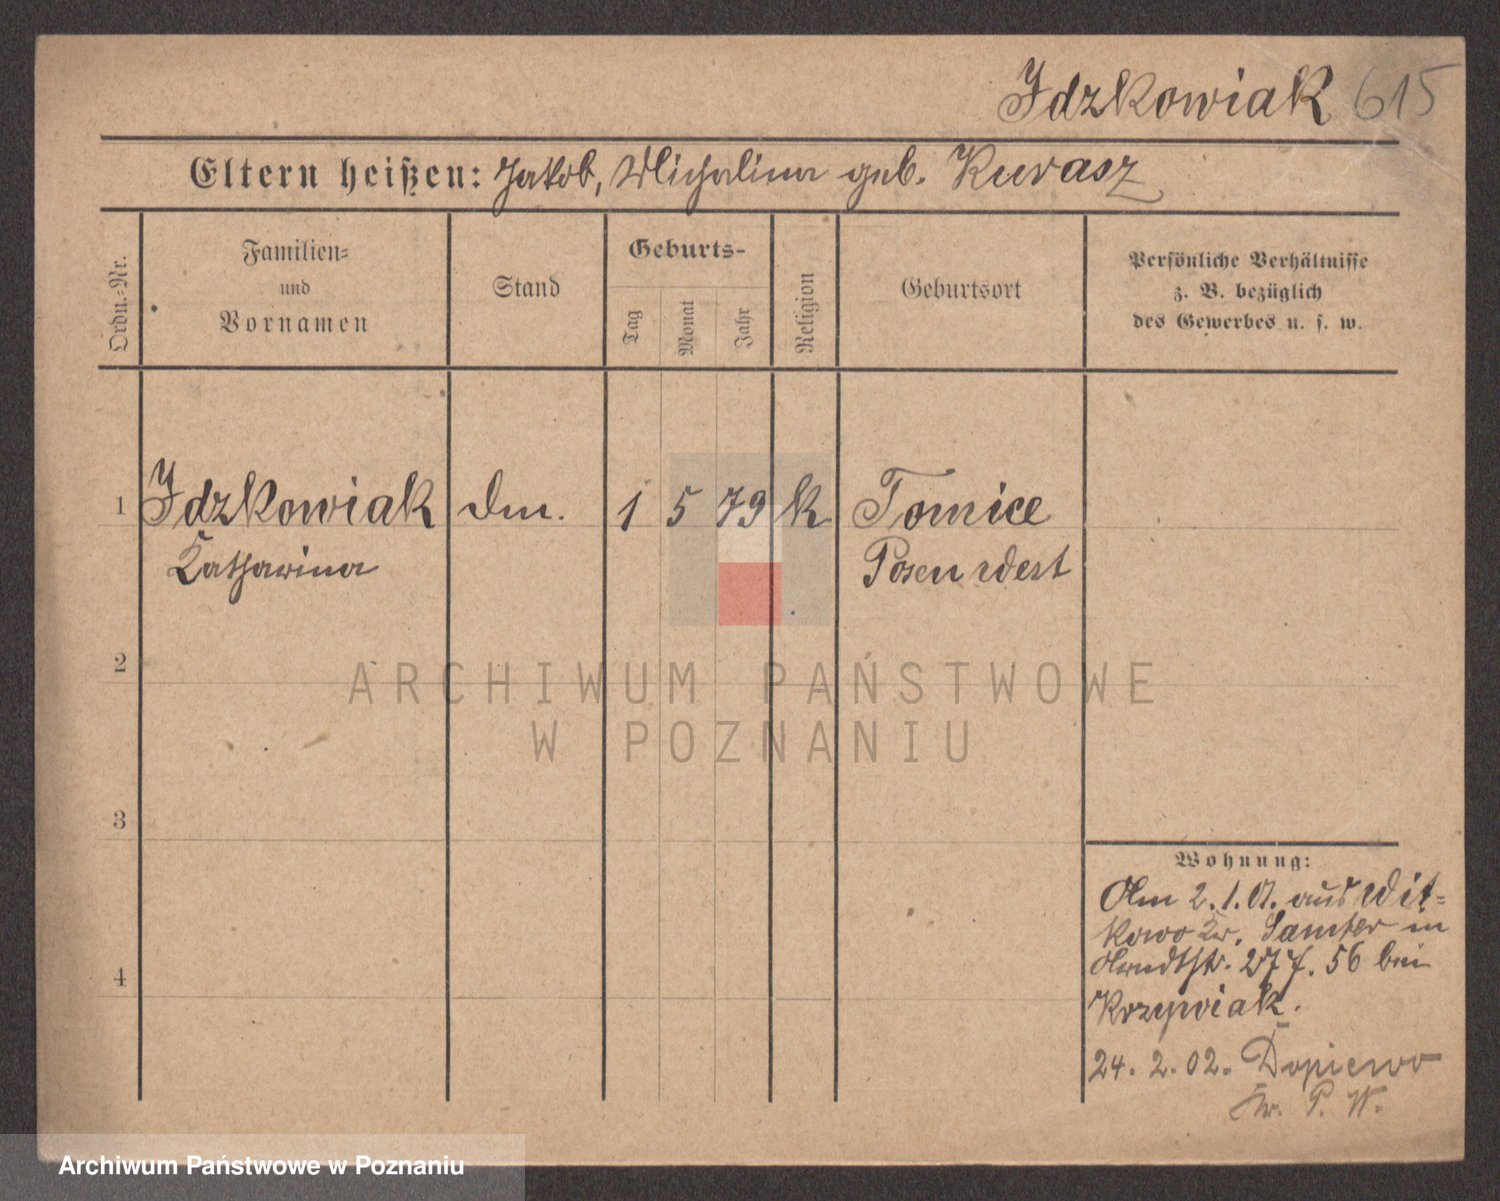 Idzkowiak 615
Eltern heißen: Jakob, Michalina geb. Kurasz
Ordn.=Nr.
Familien=
und
Vornamen
Stand
Geburts-
Tag
Monat
Jahr
Religion
Geburtsort
Persönliche Verhältnisse
z. B. bezüglich
des Gewerbes u. s. w.
1 Idzkowiak 1 5 79 k Tomice
Katharina Posen West
2
3
4
ARCHIWUM PAŃSTWOWE
W POZNANIU
Wohnung:
2. 1. 01. aus Wit=
kowo Kr. Samter in
56 bei
Krzywiak.
24. 2. 02. Dopiewo
Kr. P. W.
Archiwum Państwowe w Poznaniu